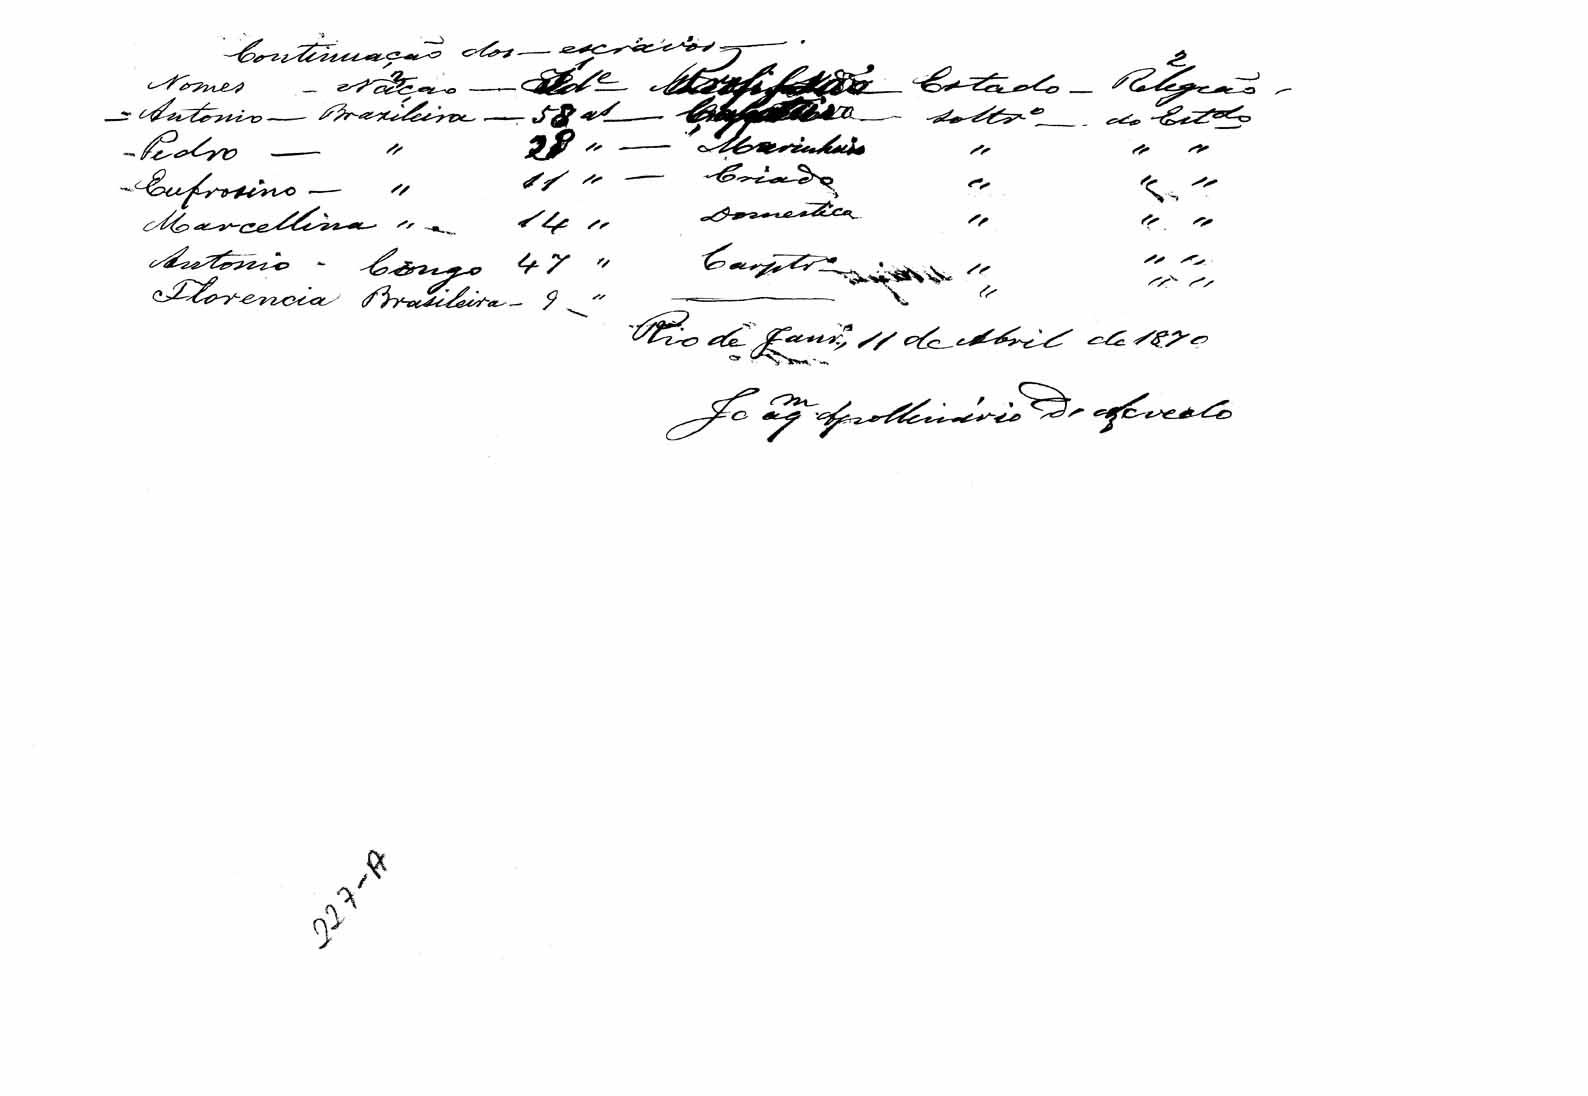 Continuação dos — escravos —.
Nomes — Nação — Ide — Profissão — Estado — Religião —
= Antonio — Brazileira — 58 as — — soltro — do Estdo
- Pedro — " 28 " — Marinheiro " " "
- Eufrosino — " 11 " — Criado " " "
Marcellina " - 14 " Domestica " " "
Antonio - Congo 47 " Carptro " " "
Florencia Brasileira - 9 - " ——— " " "
Rio de Janro, 11 de Abril de 1870
Joaqm Apollinário de Azevedo
227-A